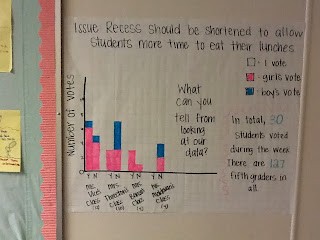 Issue Recess should be shortened to allow
students more time to eat their lunches
- 1 vote
- girls vote
- boy's vote
Number of Votes
What
can you
tell from
looking
at our
data?
In total, 30
students voted
during the week
There are 127
fifth graders in
all.
Y N Y N Y N Y N
Mrs.
Class
Mrs.
Class
Mrs.
Class
Class